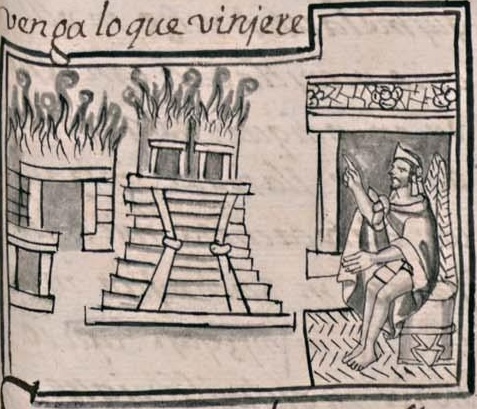 venga lo que vinjere